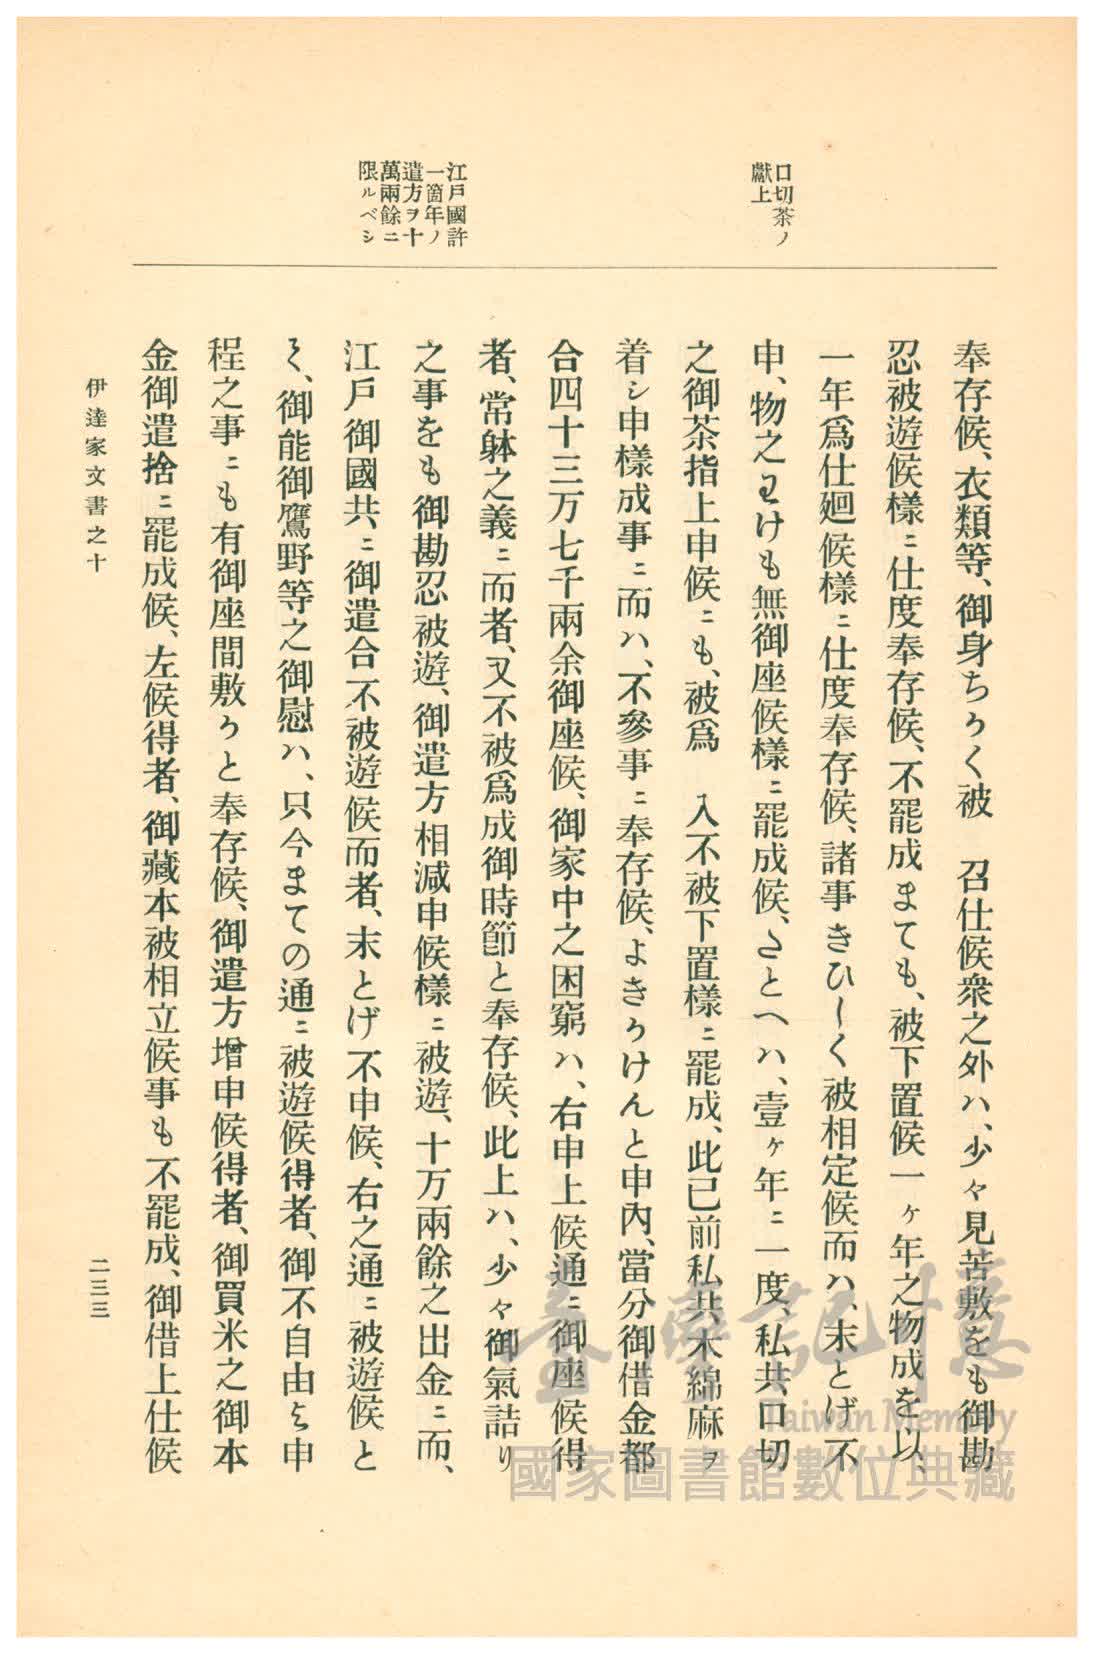 口切茶ノ
獻上
江戸國許
一箇年ノ
遣方ヲ十
萬兩餘ニ
限ルベシ
奉存候、衣類等、御身ちかく被　召仕候衆之外ハ、少々見苦敷をも御勘
忍被遊候樣ニ仕度奉存候、不罷成まても、被下置候一ヶ年之物成を以、
一年爲仕廻候樣ニ仕度奉存候、諸事きひしく被相定候而ハ、末とげ不
申、物之わけも無御座候樣ニ罷成候、さとへハ、壹ヶ年ニ一度、私共口切
之御茶指上申候ニも、被爲　入不被下置樣ニ罷成、此已前私共木綿麻ヲ
着シ申樣成事ニ而ハ、不參事ニ奉存候、よきかけんと申內、當分御借金都
合四十三万七千兩余御座候、御家中之困窮ハ、右申上候通ニ御座候得
者、常躰之義ニ而者、又不被爲成御時節と奉存候、此上ハ、少々御氣詰り
之事をも御勘忍被遊、御遣方相減申候樣ニ被遊、十万兩餘之出金ニ而、
江戸御國共ニ御遣合不被遊候而者、末とげ不申候、右之通ニ被遊候と
て、御能御鷹野等之御慰ハ、只今まての通ニ被遊候得者、御不自由と申
程之事ニも有御座間敷かと奉存候、御遣方增申候得者、御買米之御本
金御遣捨ニ罷成候、左候得者、御藏本被相立候事も不罷成、御借上仕候
伊達家文書之十
二三三
臺灣記憶
Taiwan Memory
國家圖書館數位典藏